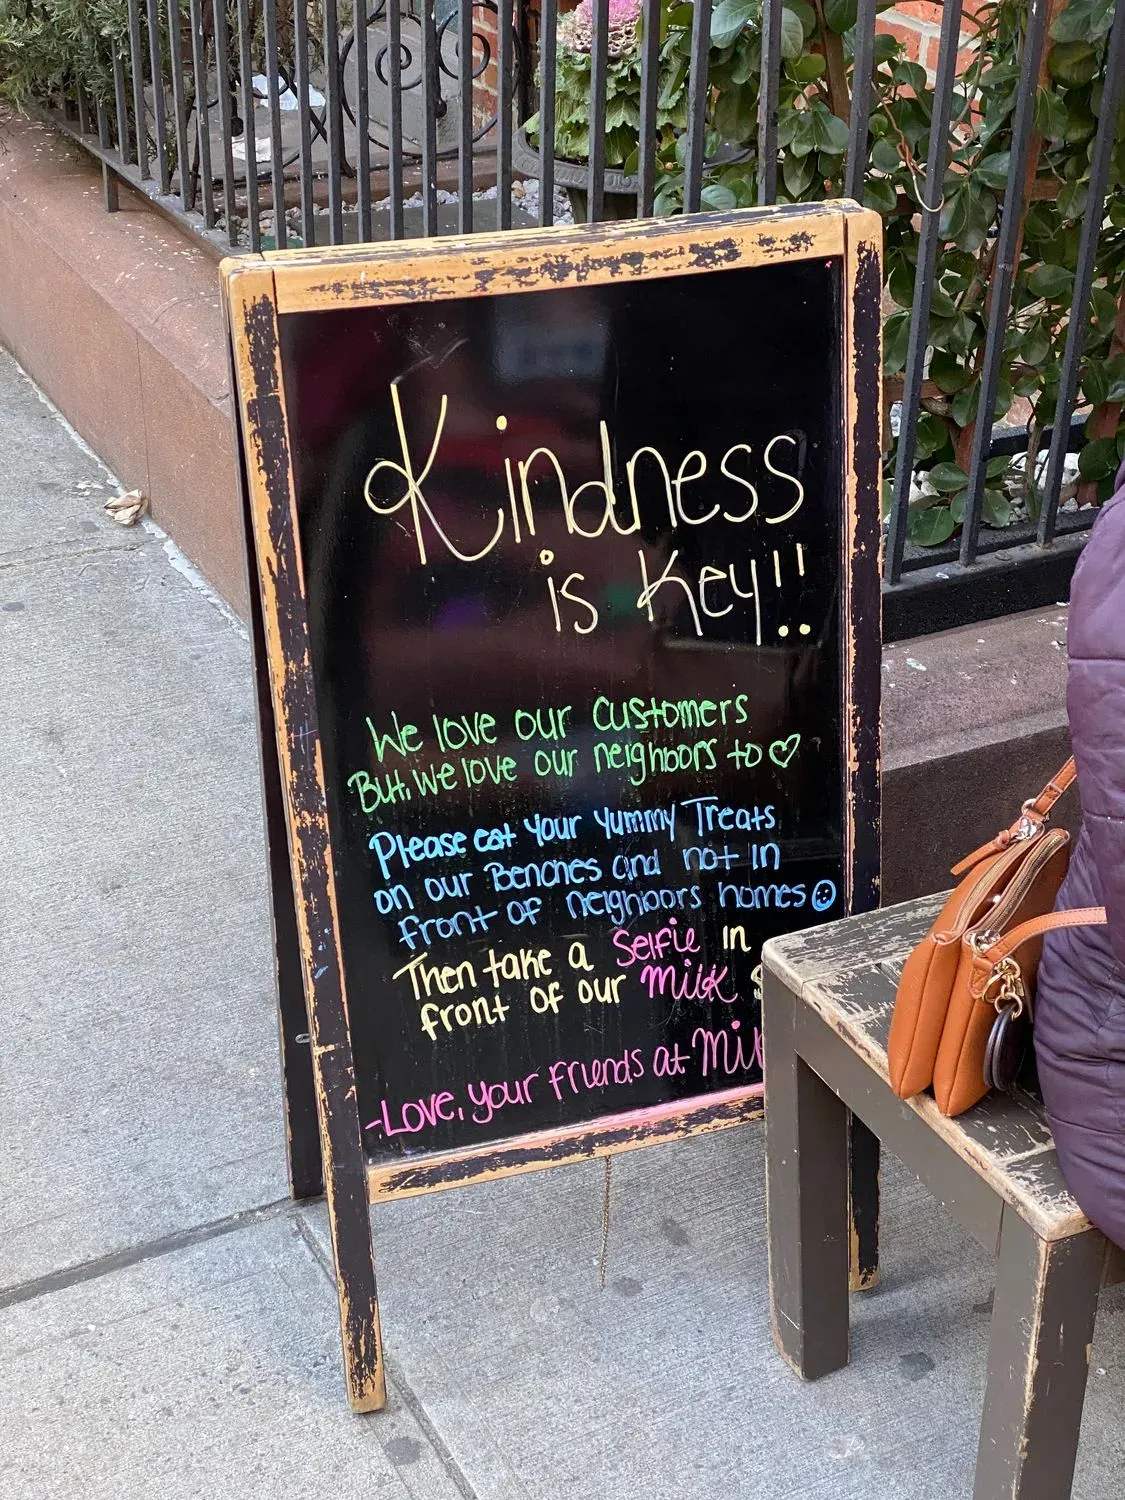 Kindness
is Key!!
We love our customers
But, we love our neighbors to ♡
Please eat your yummy Treats
on our Benches and not in
front of neighbors homes ☺
Then take a Selfie in
front of our Milk
-Love, your friends at